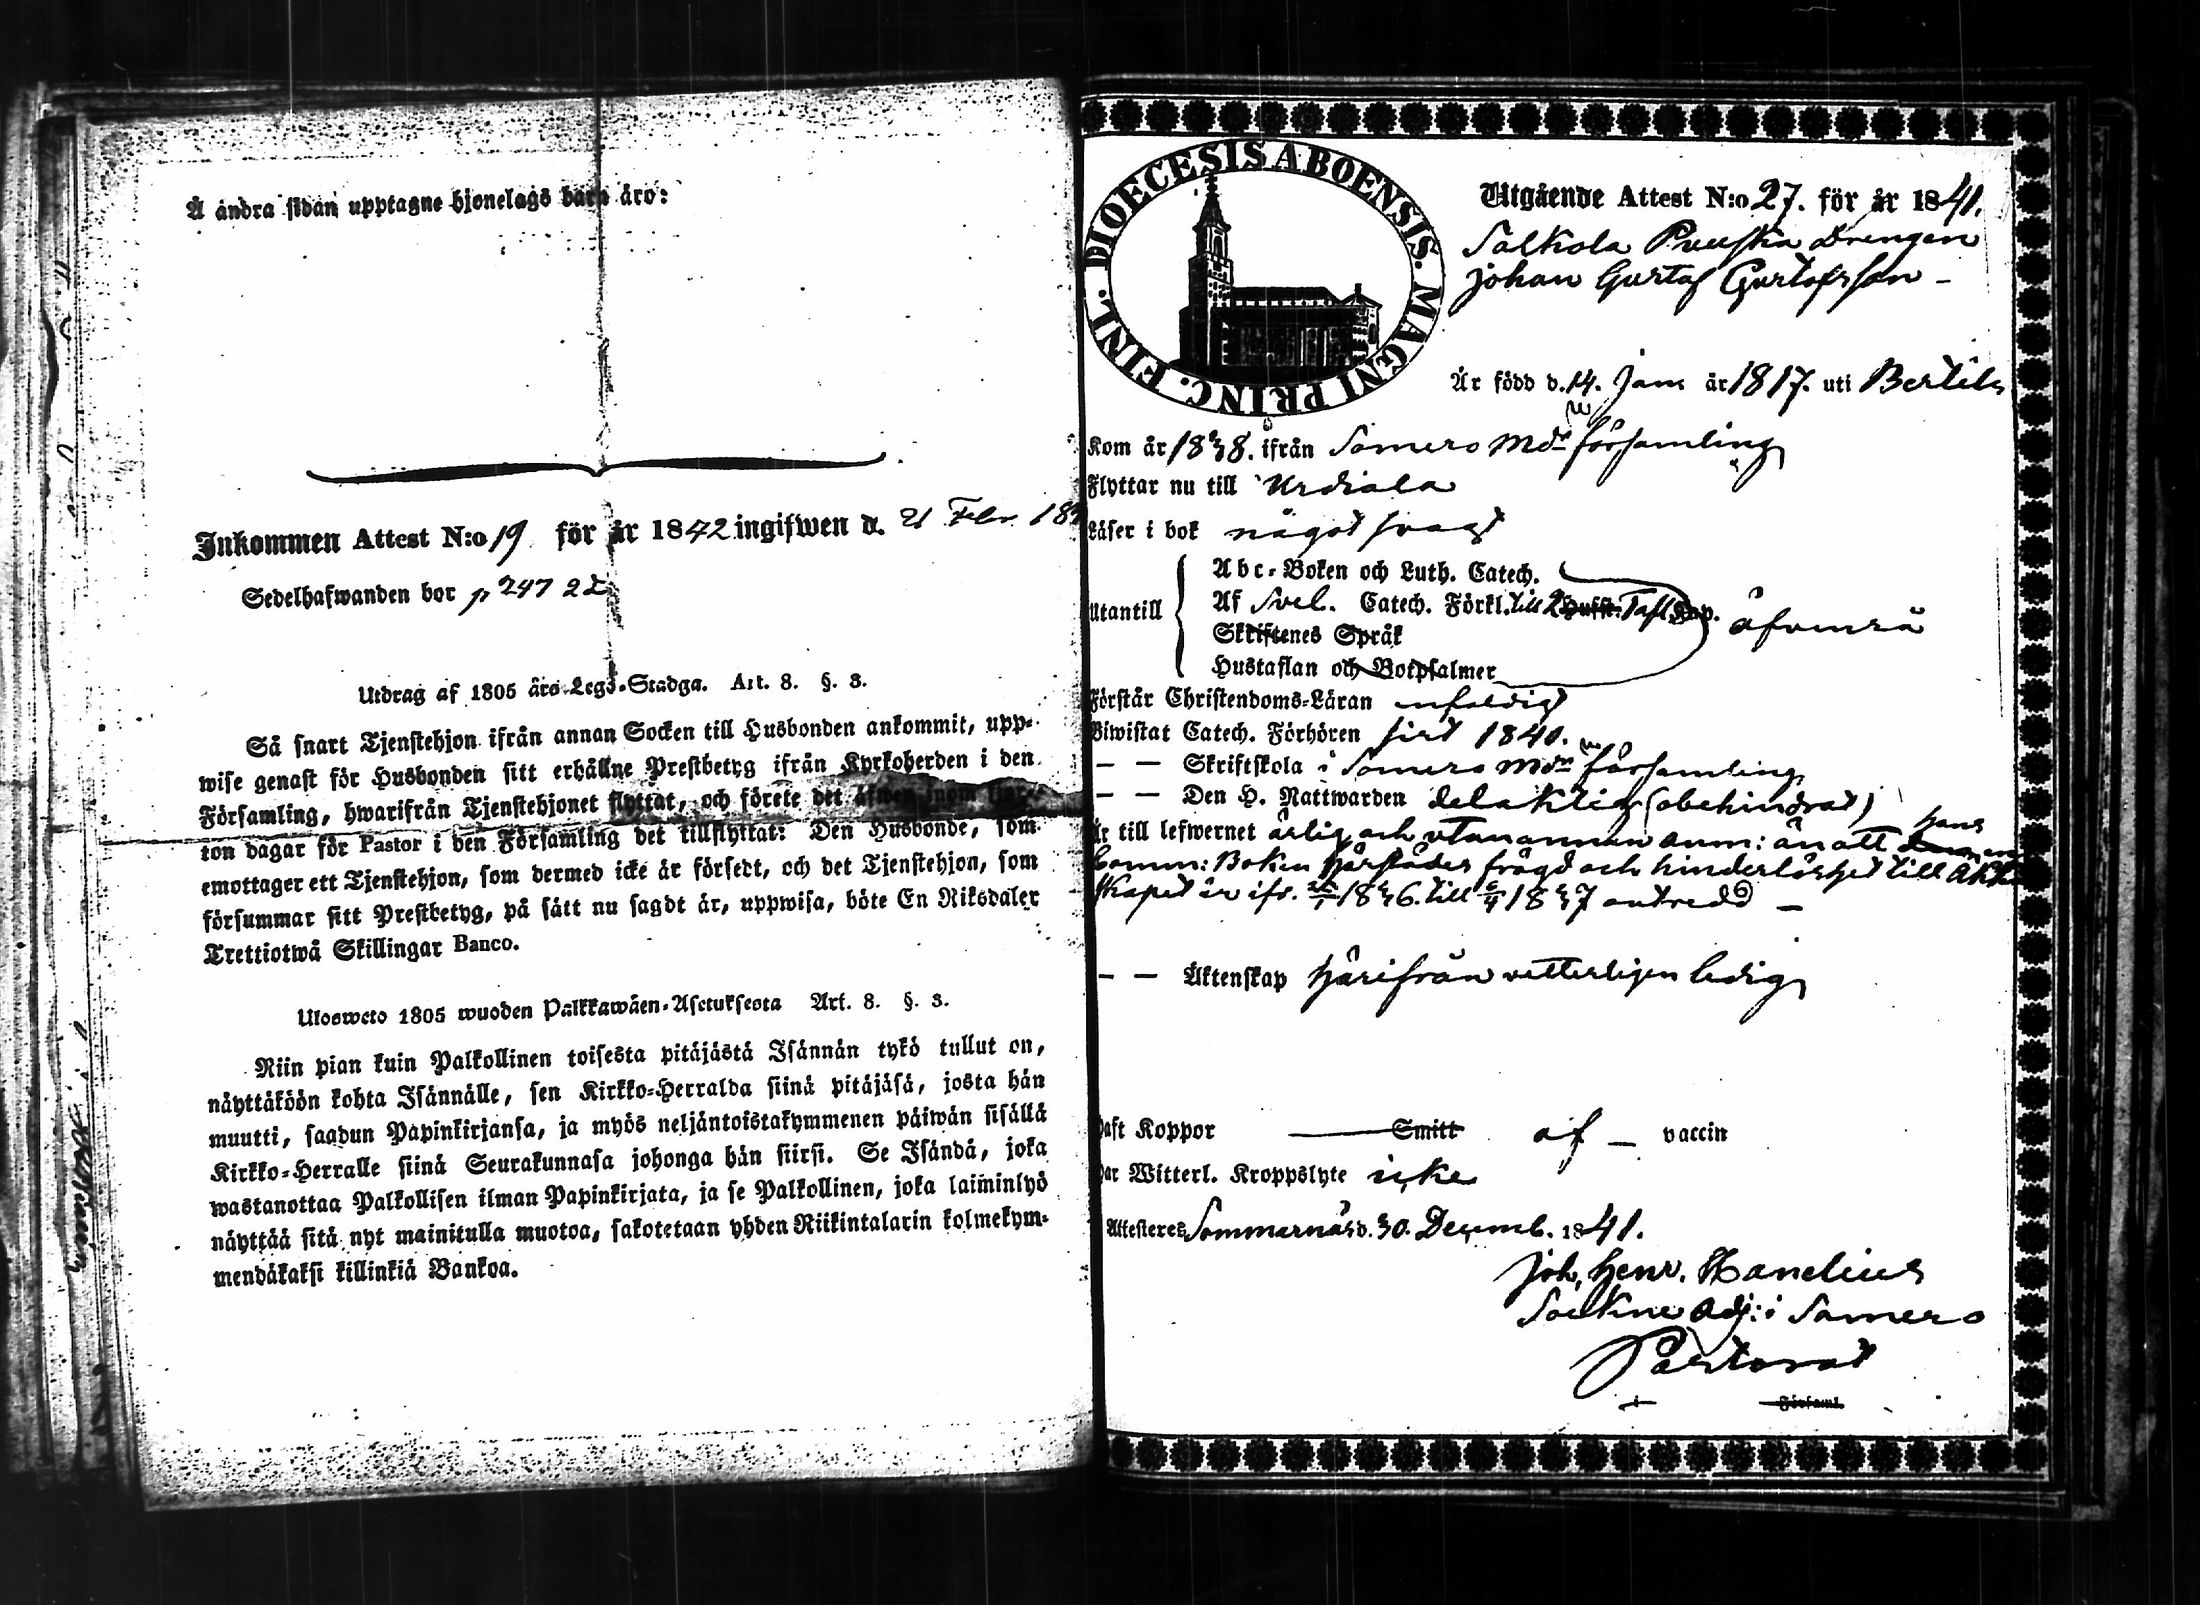 Å andra sidan upptagne hjonelags barn äro:
Inkommen Attest N:o 19 för år 1842 ingifwen d. 21 Febr. 18
Sedelhafwanden bor p 247
Utdrag af 1805 års Lego-Stadga. Art. 8. §. 3.
Så snart Tjenstehjon ifrån annan Socken till Husbonden ankommit, upp-
wise genast för Husbonden sitt erhållne Prestbetyg ifrån Kyrkoherden i den
Församling, hwarifrån Tjenstehjonet flyttat, och förete det äfwen inom fjor-
ton dagar för Pastor i den Församling det tillflyttat: Den Husbonde, som
emottager ett Tjenstehjon, som dermed icke är försedt, och det Tjenstehjon, som
försummar sitt Prestbetyg, på sätt nu sagdt är, uppwisa, böte En Riksdaler
Trettiotwå Skillingar Banco.
Ulosweto 1805 wuoden Palkkawäen-Asetuksesta Art. 8. §. 3.
Niin pian kuin Palkollinen toisesta pitäjästä Isännän tykö tullut on,
näyttäköön kohta Isännälle, sen Kirkko-Herralda siinä pitäjäsä, josta hän
muutti, saadun Papinkirjansa, ja myös neljäntoistakymmenen päiwän sisällä
Kirkko-Herralle siinä Seurakunnasa johonga hän siirsi. Se Isändä, joka
wastanottaa Palkollisen ilman Papinkirjata, ja se Palkollinen, joka laiminlyö
näyttää sitä nyt mainitulla muotoa, sakotetaan yhden Riikintalarin kolmekym-
mendäkaksi killinkiä Bankoa.
DIOECESIS ABOENSIS. MAGNI PRINC. FINL.
Utgående Attest N:o 27. för år 1841.
Salkola Drengen
Johan Gustaf Gustafsson
Är född d. 14. Jan år 1817. uti Bertils
Kom år 1838. ifrån Somero församling
Flyttar nu till Urdiala
Läser i bok något svagt
Utantill
Abc-Boken och Luth. Catech.
Af Svel. Catech. Förkl. till 2 Hufst. Tafl. Cap. åfvenså
Skriftenes Språk
Hustaflan och Botpsalmer
Förstår Christendoms-Läran enfaldigt
Biwistat Catech. Förhören sist 1840.
— — Skriftskola i Somero församling
— — Den H. Nattwarden delaktig (obehindrad)
Är till lefwernet ärlig och utan annan anm: än att hans
Comm: Boken härstädes frägd och hinderlöshet till Äkten
skapet är ifr. 1836. till 1837 outredd —
— — Äktenskap härifrån vetterligen ledig
Haft Koppor Smitt af — vaccin
Har Witterl. Kroppslyte icke
Attesteres Sommernäs d. 30. Decemb. 1841.
Joh. Henr. Hanelius
Sockne Adj: i Somero
Pastorat
i Församl.